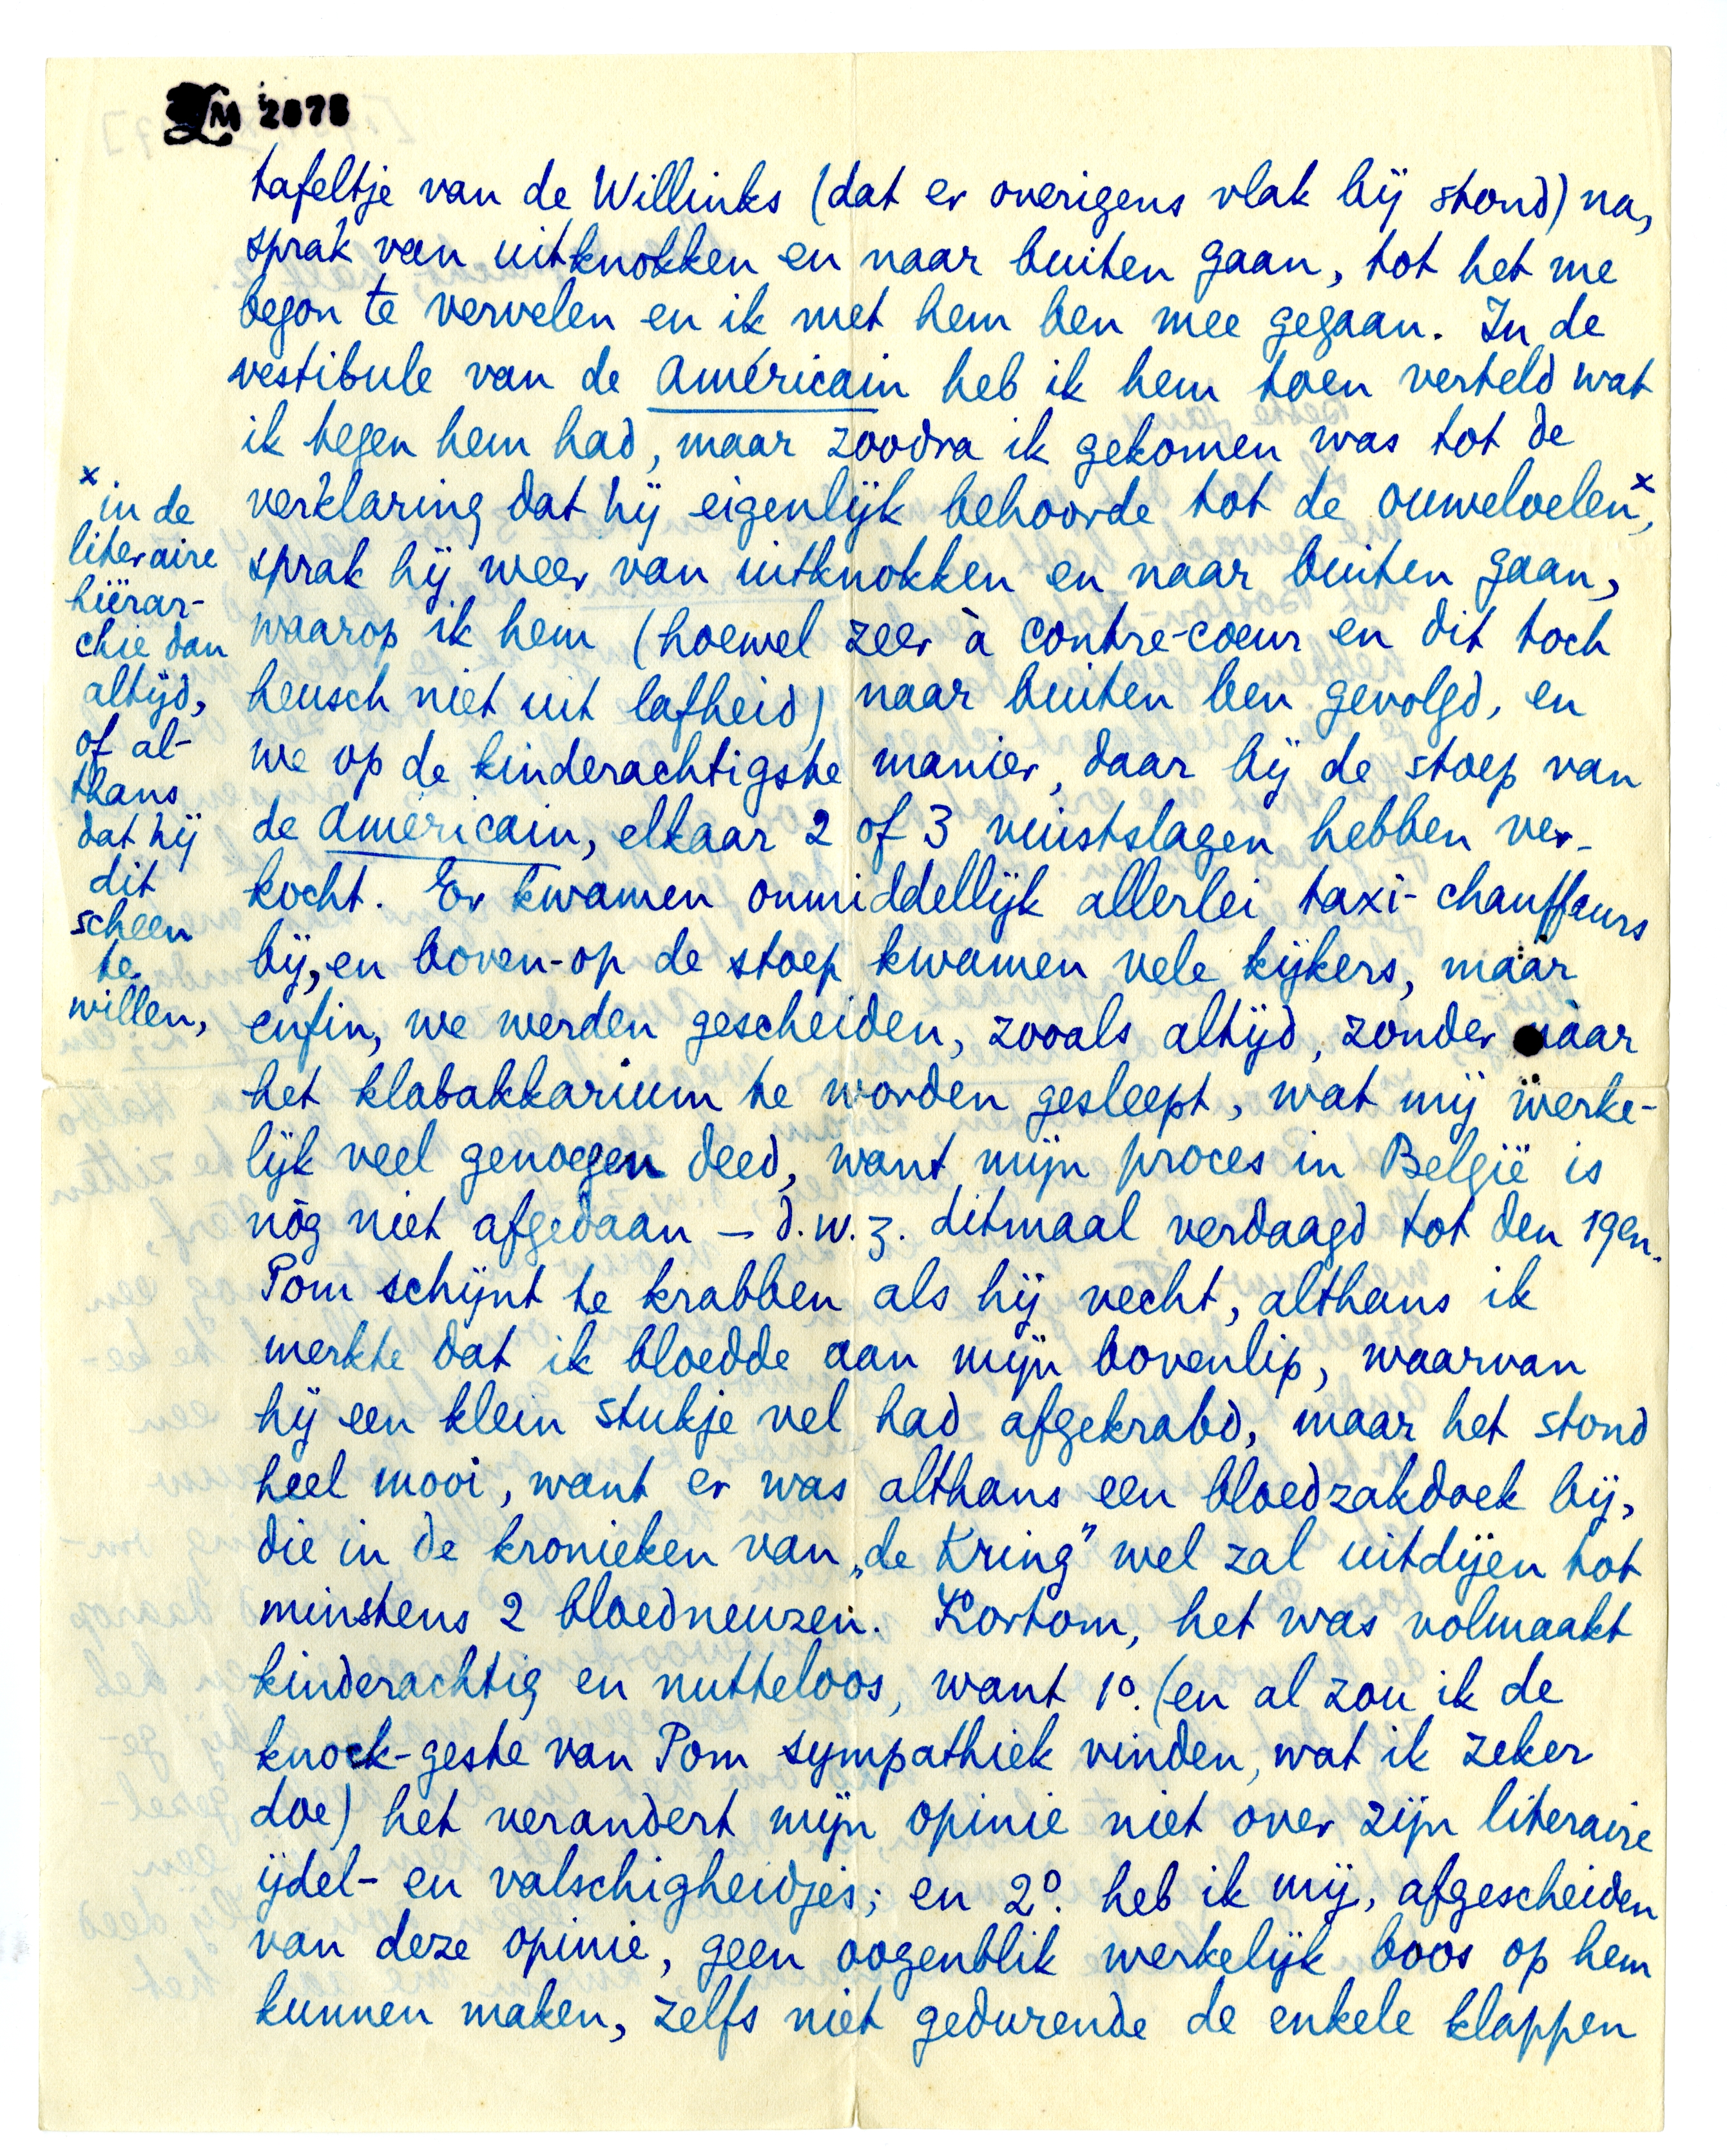 LM 2878
tafeltje van de Willinks (dat er overigens vlak bij stond) na,
sprak van uitknokken en naar buiten gaan, tot het me
begon te vervelen en ik met hem ben mee gegaan. In de
vestibule van de Américain heb ik hem toen verteld wat
ik tegen hem had, maar zoodra ik gekomen was tot de
verklaring dat hij eigenlijk behoorde tot de ouweloelen x,
sprak hij weer van uitknokken en naar buiten gaan,
waarop ik hem (hoewel zeer à contre-coeur en dit toch
heusch niet uit lafheid) naar buiten ben gevolgd, en
we op de kinderachtigste manier, daar bij de stoep van
de Américain, elkaar 2 of 3 vuistslagen hebben ver-
kocht. Er kwamen onmiddellijk allerlei taxi-chauffeurs
bij, en boven-op de stoep kwamen vele kijkers, maar
enfin, we werden gescheiden, zooals altijd, zonder naar
het klabakkarium te worden gesleept, wat mij werke-
lijk veel genoegen deed, want mijn proces in België is
nòg niet afgedaan – d.w.z. ditmaal verdaagd tot den 19en.
Pom schijnt te krabben als hij vecht, althans ik
merkte dat ik bloedde aan mijn bovenlip, waarvan
hij een klein stukje vel had afgekrabd, maar het stond
heel mooi, want er was althans een bloedzakdoek bij,
die in de kronieken van „de Kring" wel zal uitdijen tot
minstens 2 bloedneuzen. Kortom, het was volmaakt
kinderachtig en nutteloos, want 1o. (en al zou ik de
knock-geste van Pom sympathiek vinden, wat ik zeker
doe) het verandert mijn opinie niet over zijn literaire
ijdel- en valschigheidjes; en 2o. heb ik mij, afgescheiden
van deze opinie, geen oogenblik werkelijk boos op hem
kunnen maken, zelfs niet gedurende de enkele klappen
x in de
literaire
hiërar-
chie dan
altijd,
of al-
thans
dat hij
dit
scheen
te
willen,